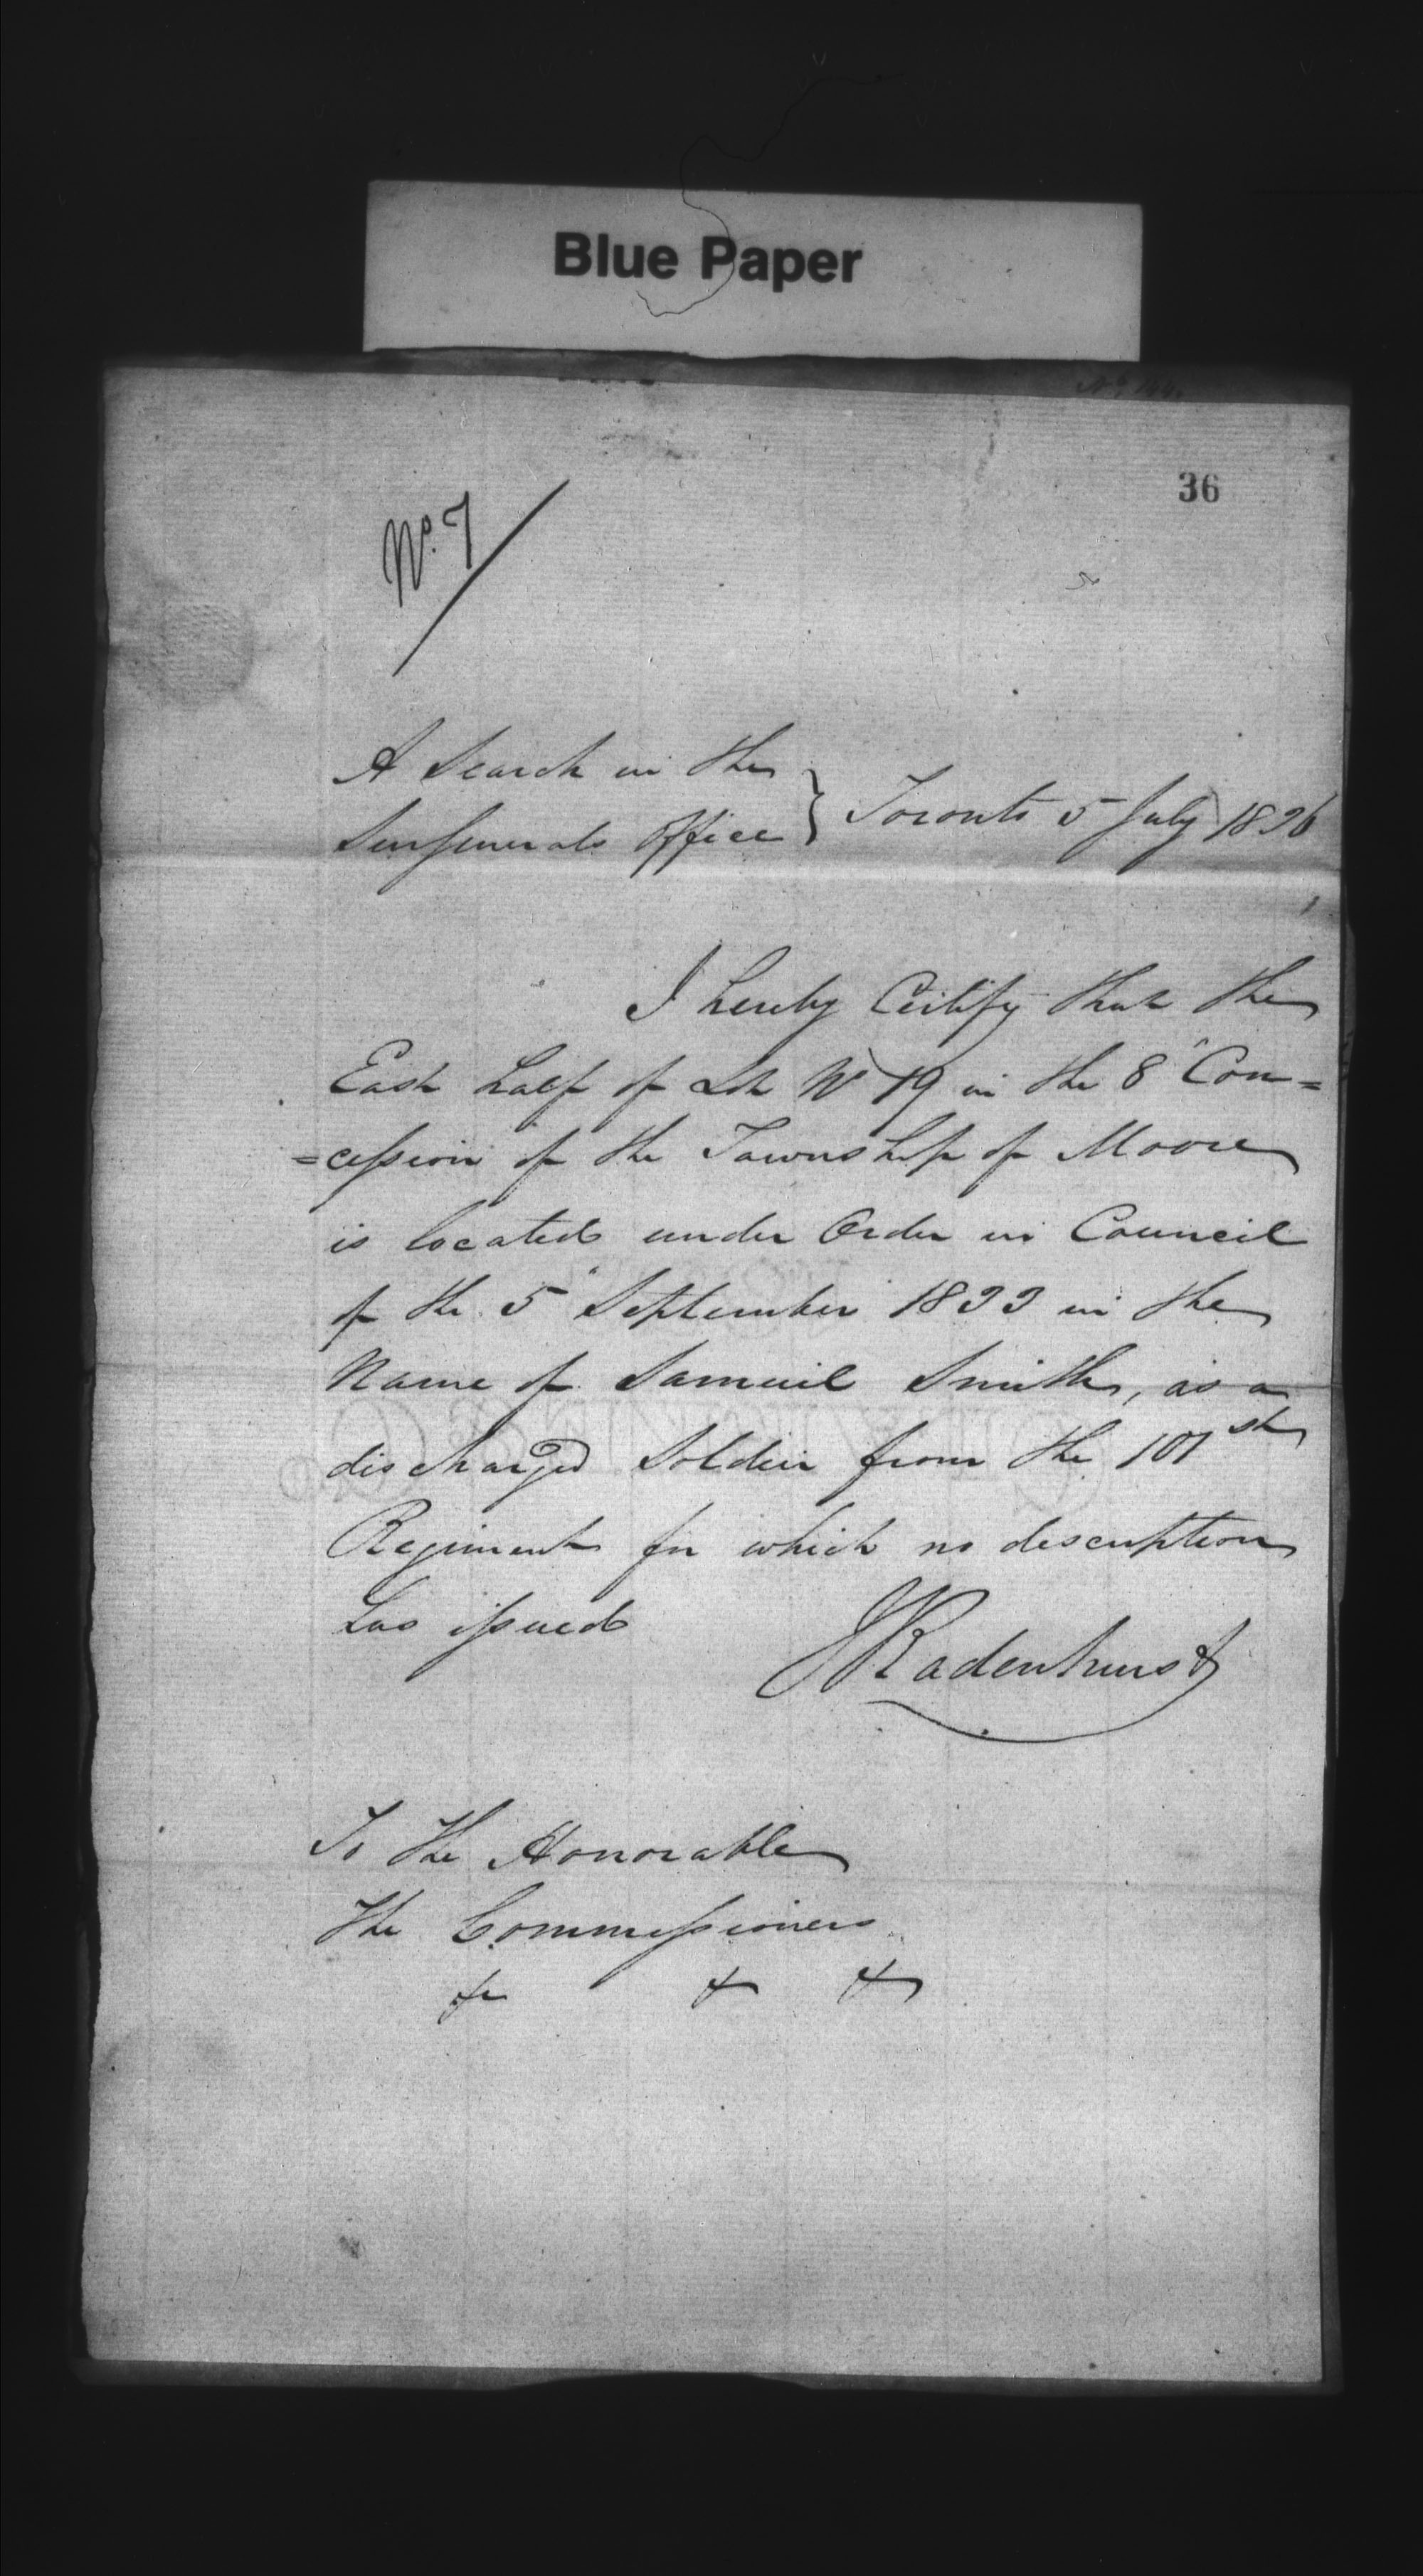 Blue Paper
36
No. 7
A Search in the
SurGenerals Office } Toronto 5 July 1836
I hereby Certify that the
East half of Lot No 19 in the 8" Con=
=cession of the Township of Moore
is located under Order in Council
of the 5" September 1833 in the
Name of Samuel Smith, as a
discharged Soldier from the 101st
Regiment for which no description
has issued
JRadenhurst
To the Honorable
The Commissioners
&c & &